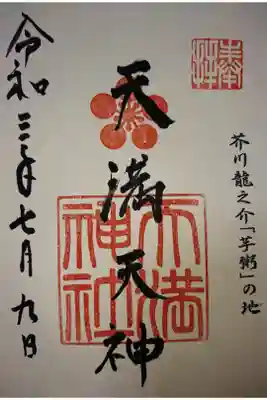 奉拝
芥川龍之介「芋粥」の地
天満天神
天満神社
令和三年七月九日